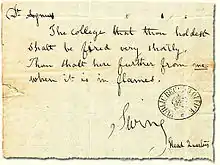 St Agnus
The college that thou holdest
shall be fired very shortly
Thou shalt hear further from me
when it is in flames.
Swing
Head Quarters